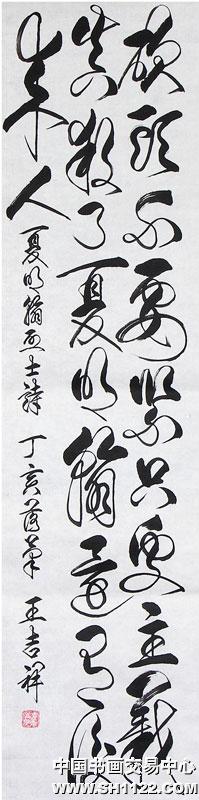 砍頭不要緊只要主義
真殺了夏明翰還有後
来人
夏明翰烈士詩 丁亥 王吉祥
中国书画交易中心
WWW.SH1122.COM